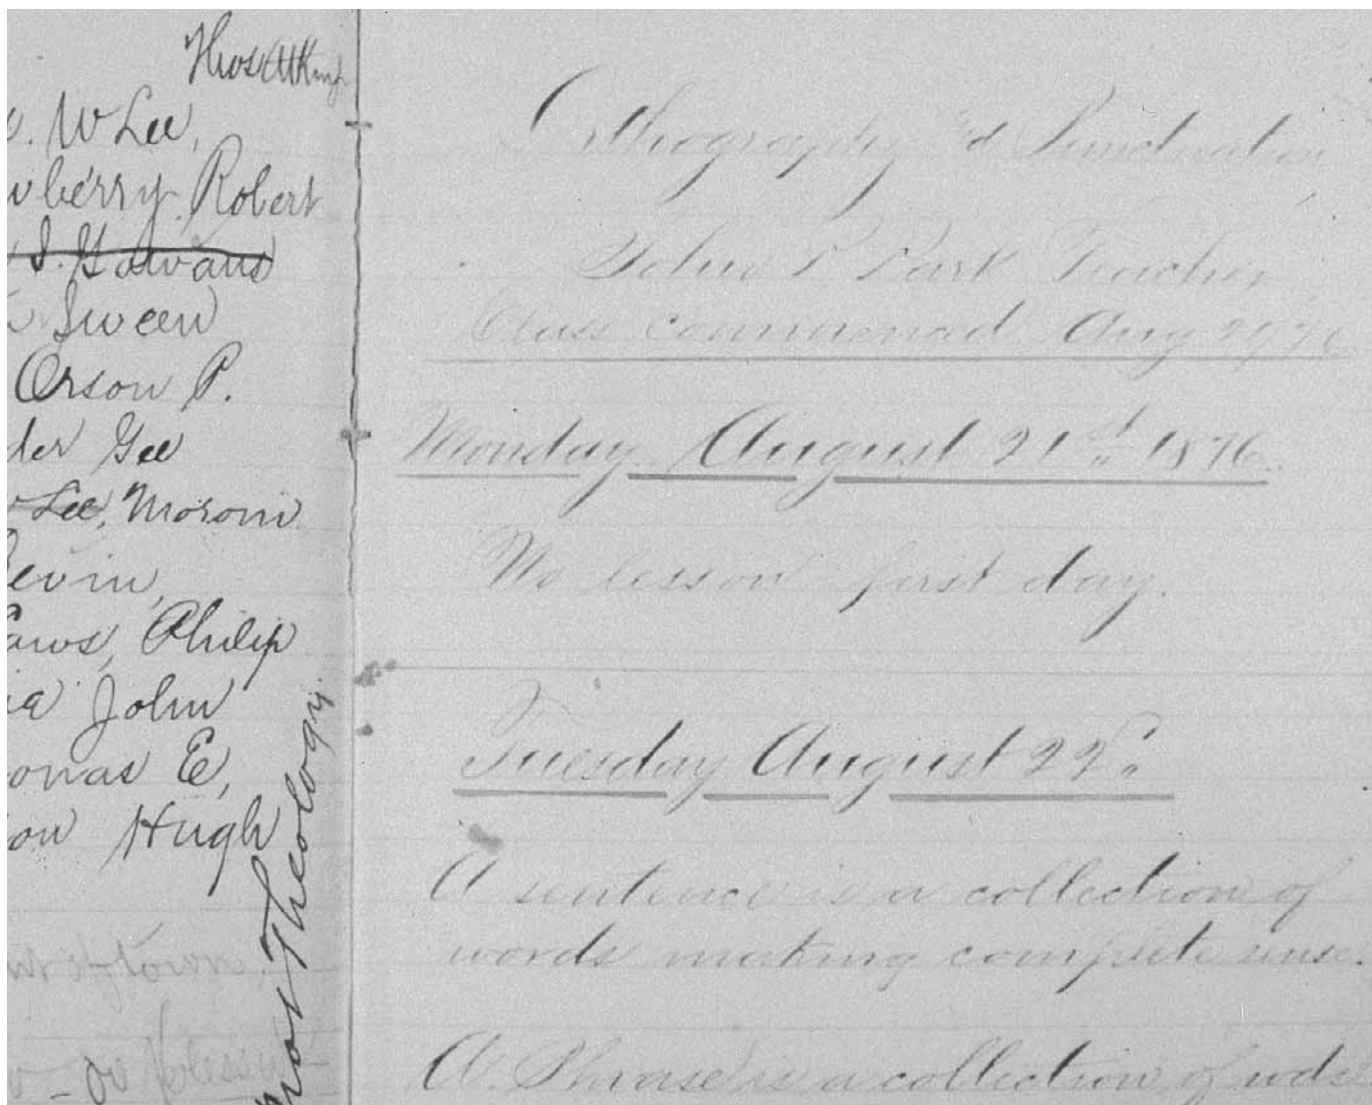 W Lee,
berry Robert
S. Gowans
Sween
Orson P.
der Gee
Lee, Moroni
evin,
aws, Philip
ia John
omas E,
on Hugh
Theology
Orthography & Punctuation
John R Park Teacher
Class Commenced Aug
Monday August 21st 1876.
No lesson first day.
Tuesday August 22d.
A sentence is a collection of
words making complete sense.
A Phrase is a collection of wds